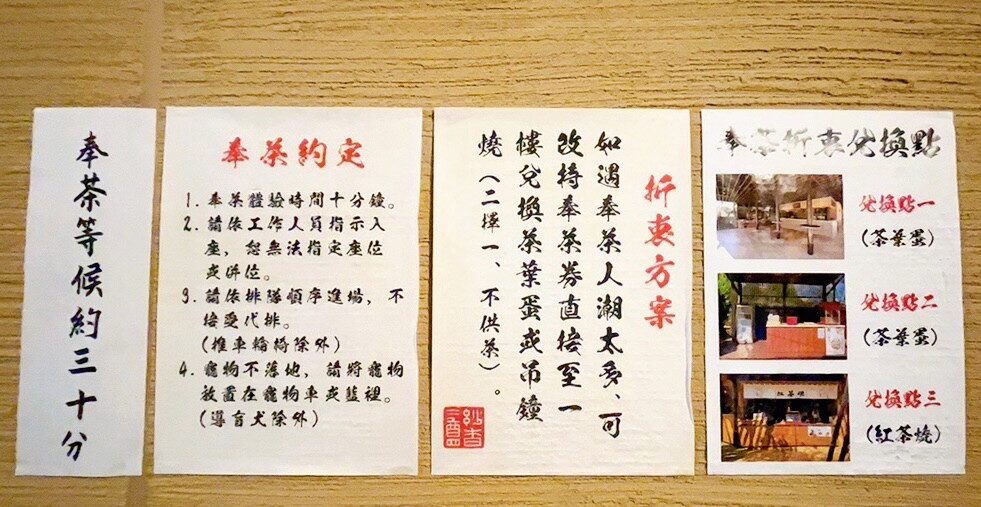 奉茶等候約三十分
奉茶約定
1. 奉茶體驗時間十分鐘。
2. 請依工作人員指示入
座，恕無法指定座位
或併位。
3. 請依排隊順序進場，不
接受代排。
(推車輪椅除外)
4. 寵物不落地，請將寵物
放置在寵物車或籃裡。
(導盲犬除外)
折衷方案
如遇奉茶人潮太多、可
改持奉茶券直接至一
樓兌換茶葉蛋或吊鐘
燒(二擇一、不供茶)。
奉茶折衷兌換點
兌換點一
(茶葉蛋)
兌換點二
(茶葉蛋)
兌換點三
(紅茶燒)